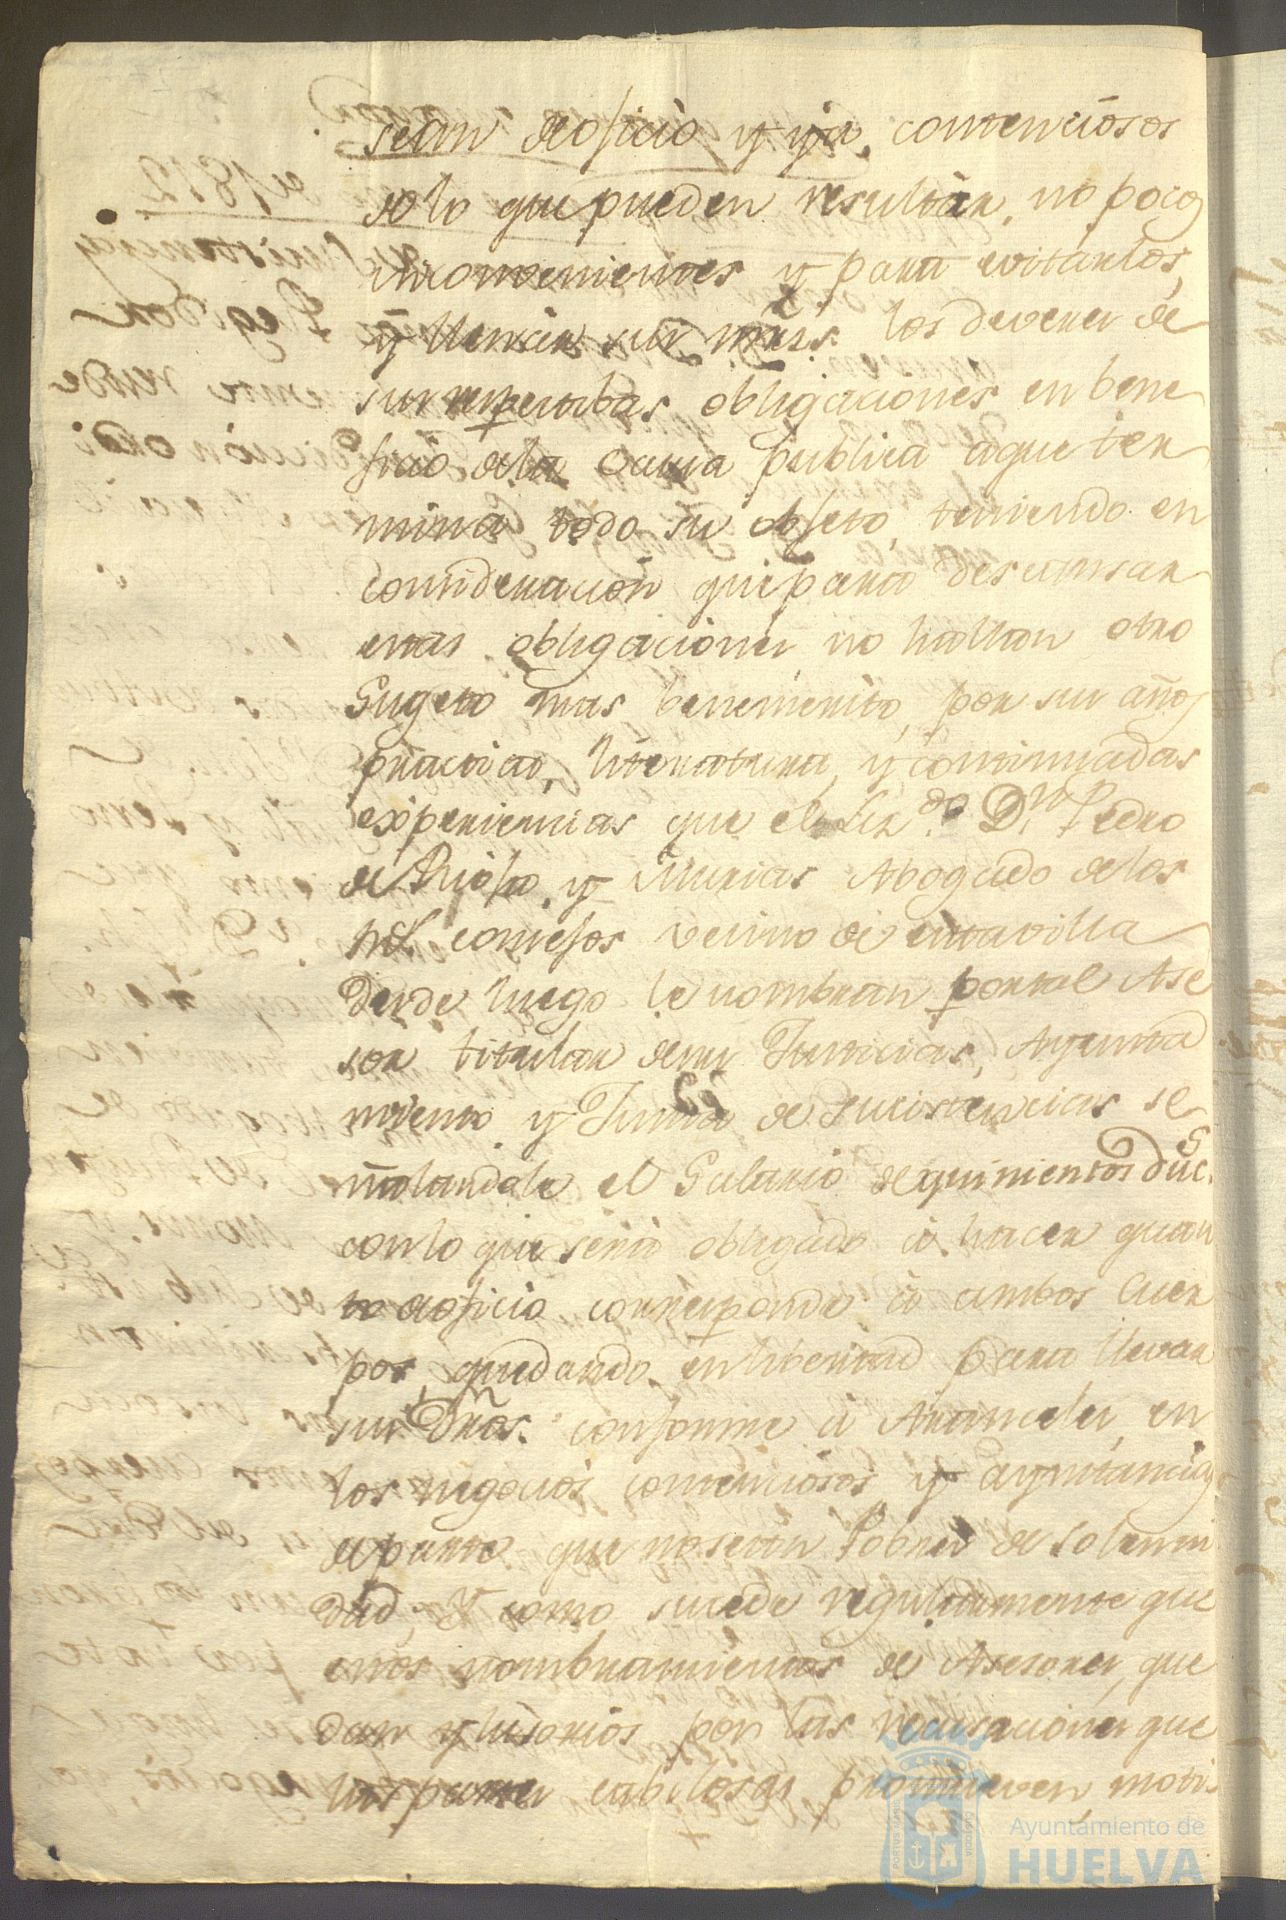 sean de oficio y ya contenciosos
solo que pueden resultar no pocos
inconvenientes y para evitarlos,
y llenar sus mrzs. los deveres de
sus respectibas obligaciones en bene
ficio de la Causa publica aque ter
mina todo su objeto, teniendo en
consideracion que para descansar
estas obligaciones no hallan otro
Sugeto mas benemerito, por sus años
practica, literatura, y continuadas
experiencias que el Liz.do D.n Pedro
de Rioja y Murias Abogado de los
rs. consejos vecino de esta villa
desde luego le nombran por tal Ase
sor titular de sus Justicias, Ayunta
miento y Junta de Sucistencias se
ñalandole el Salario de quinientos duc.s
con lo que será obligado á hacer quan
to de oficio corresponda á ambos Cuer
pos, quedando en libertad para llevar
sus Dros. conforme á Aranceles en
los negocios contenciosos y aynstancia
de parte que no sean Pobres de solemni
dad, Y como sucede regularmente que
estos nombramientos de Asesores, que
dan ylusorios por las recusaciones que
las partes cabilosas promueven, motis
Ayuntamiento de
HUELVA